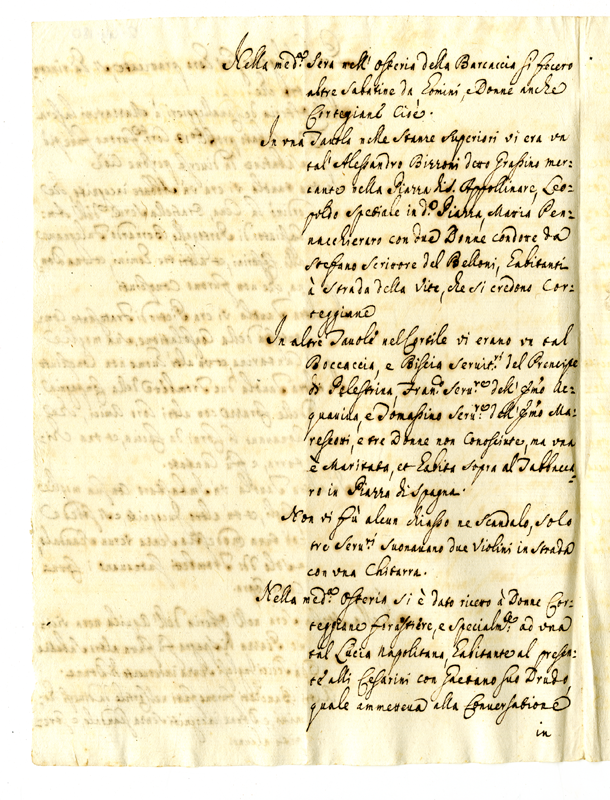 Nella med.ª Sera nell' osteria della Barcaccia si fecero
altre Sabatine da Eomini, e Donne anche
Cortegiane Cioè.
In una Tauola nelle Stanze Superiori vi era un
tal' Alessandro Bizzoni detto Grassino mer=
cante nella Piazza di S. Appollinare, Leo=
poldo Spetiale in d.ª Piazza, Maria Pen=
nacchieraro con due Donne condotte da
Steffano Scrittore del Belloni, Eabitanti
à Strada della Vite, che si credono Cor=
teggiane
In altre Tauole nel Cortile vi erano un tal
Boccaccia, e Biscia Seruit.ri del Prencipe
di Pelestrina, Fran.co Seru.re dell' Emo Ac=
quauiua, e Tomassino Seru.re dell' Emo Ma=
rescotti, e tre Donne non Conosciute, ma una
è Maritata, et Eabita sopra al Tabbacca=
ro in Piazza di Spagna.
Non vi fù alcun chiasso ne Scandalo, solo
tre Seru.ri Suonauano due Violini in strada
con una Chitarra.
Nella med.ª Osteria si è dato ricetto à Donne Cor=
teggiane forastiere, e specialm.te ad una
tal Lucia Napolitana, Eabitante al presen=
te alli Cesarini con Gaetano suo Drudo,
quale ammetteua alla Conuersatione
in